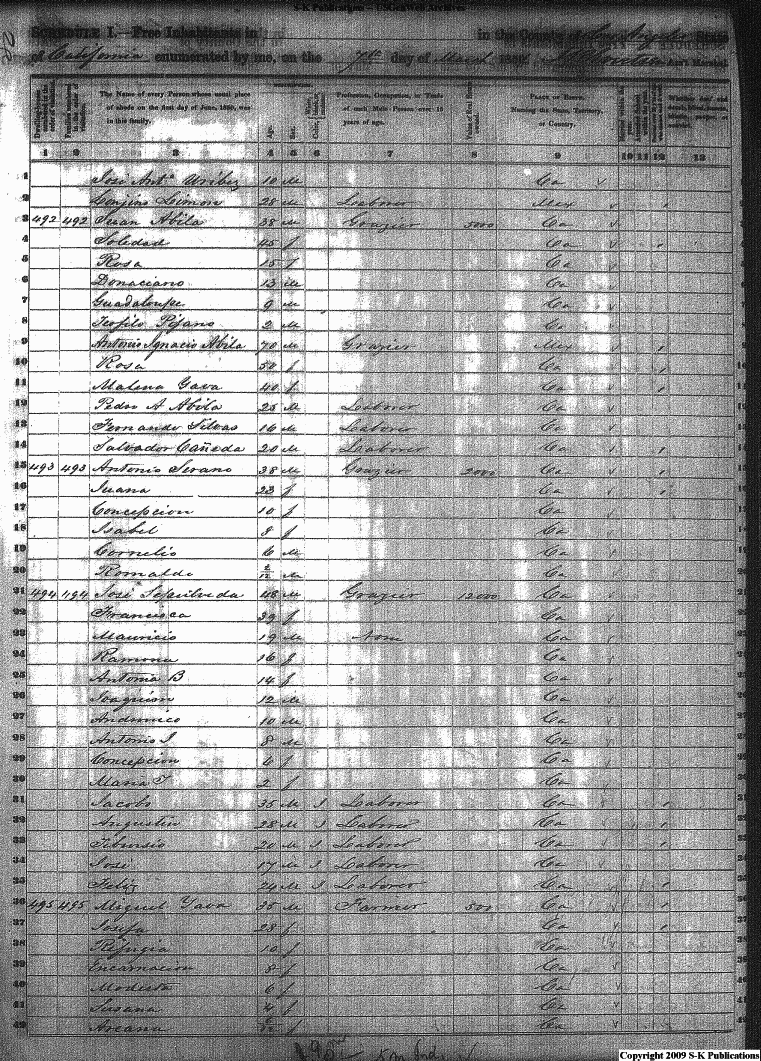 S-K Publications - USGenWeb Archives
SCHEDULE I.—Free Inhabitants in in the County of Los Angeles State
of California enumerated by me, on the 7th day of March Ass't Marshal.
The Name of every Person whose usual place of abode on the first day of June, 1850, was in this family. Age. Sex. Profession, Occupation, or Trade of each Male Person over 15 years of age. Value of Real Estate owned. Place of Birth. Naming the State, Territory, or Country.
1 2 3 4 5 6 7 8 9 10 11 12 13
1 José Anto Uribez 10 M Ca
2 Limon 28 M Laborer Mex
3 492 492 Juan Abila 38 M Grazier 5000 Ca
4 Soledad 45 f Ca
5 Rosa 15 f Ca
6 Donaciano 13 M Ca
7 Guadaloupe 9 M Ca
8 Teofilo Pifano 2 M Ca
9 Antonio Ignacio Abila 70 M Grazier Mex
10 Rosa 50 f Ca
11 Malena Yava 40 f Ca
12 Pedro A Abila 25 M Laborer Ca
13 Fernando Silvas 16 M Laborer Ca
14 Salvador Cañeda 20 M Laborer Ca
15 493 493 Antonio Serano 38 M Grazier 2000 Ca
16 Juana 23 f Ca
17 Concepcion 10 f Ca
18 Isabel 8 f Ca
19 Cornelio 6 M Ca
20 Romaldi 2/12 M Ca
21 494 494 José Sepulveda 48 M Grazier 12000 Ca
22 Francisca 39 f Ca
23 Mauricio 19 M None Ca
24 Ramona 16 f Ca
25 Antonia B 14 f Ca
26 Joaquim 12 M Ca
27 Andronico 10 M Ca
28 Antonio J 8 M Ca
29 Concepcion 6 f Ca
30 Maria T 2 f Ca
31 Jacobo 35 M I Laborer Ca
32 Augustin 28 M I Laborer Ca
33 Tibursio 20 M I Laborer Ca
34 José 17 M I Laborer Ca
35 Feliz 24 M I Laborer Ca
36 495 495 Miguel Yava 35 M Farmer 500 Ca
37 Josefa 28 f Ca
38 Refugia 10 f Ca
39 Encarnacion 8 f Ca
40 Modesta 6 f Ca
41 Susana 4 f Ca
42 Arcana f Ca
Copyright 2009 S-K Publications